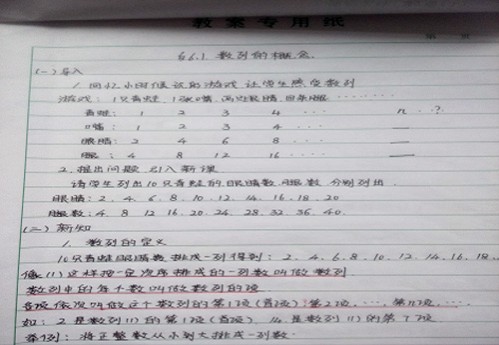 教案专用纸
§6.1 数列的概念
(一)导入
1. 回忆小时候说的游戏 让学生感受数列
游戏: 1只青蛙, 1张嘴, 两只眼睛, 四条腿 ······
青蛙: 1 2 3 4 ······ n ··?
口嘴: 1 2 3 4 ······
眼睛: 2 4 6 8 ······
腿: 4 8 12 16 ······
2. 提出问题 引入新课
请学生列出10只青蛙的眼睛数, 腿数 分别列出.
眼睛: 2. 4. 6. 8. 10. 12. 14. 16. 18. 20
腿数: 4. 8. 12. 16. 20. 24. 28. 32. 36. 40.
(二)新知
1. 数列的定义
10只青蛙眼睛数 排成一列得到: 2. 4. 6. 8. 10. 12. 14. 16. 18.
像(1)这样按一定次序排成的一列数叫做数列.
数列中的每个数叫做数列的项
各项依次叫做这个数列的第1项(首项) 第2项 ····· 第n项 ·····
如: 2是数列(1)的第1项(首项), 14是数列(1)的第7项
举例: 将正整数从小到大排成一列数: